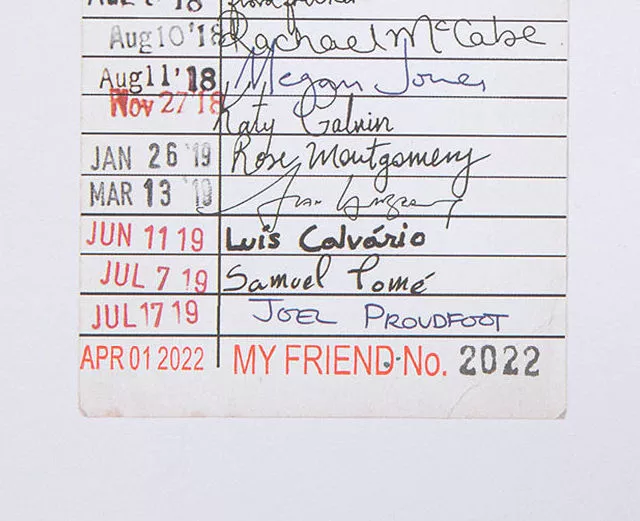 Aug 10 '18 Rachael McCabe
Aug 11 '18 Megan Jones
Nov 27 '18 Katy Galvin
JAN 26 '19 Rose Montgomery
MAR 13 '19
JUN 11 19 Luís Calvário
JUL 7 19 Samuel Tomé
JUL 17 19 JOEL PROUDFOOT
APR 01 2022 MY FRIEND No. 2022